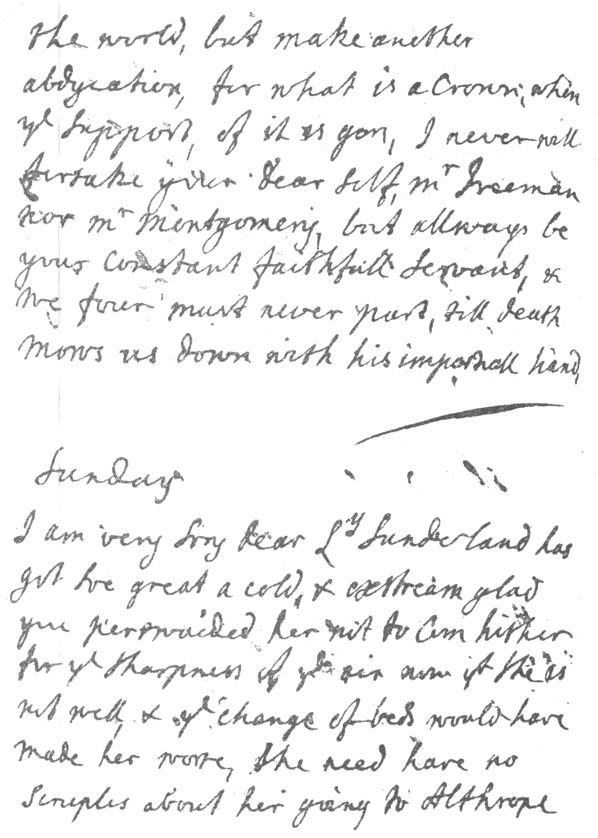 the world, but make another
abdycation, for what is a Crown, when
ye support, of it is gon, I never will
forsake your dear self, mr Freeman
nor mr Montgomery, but allways be
your constant faithfull servant, &
we four must never part, till death
mows us down with his impartiall hand,
Sunday
I am very sory dear Ly Sunderland has
got soe great a cold, & extream glad
you perswaided her not to com hither
for ye sharpness of ye air now yt she is
not well, & ye change of beds would have
made her worse, she need have no
scruples about her going to Althrope